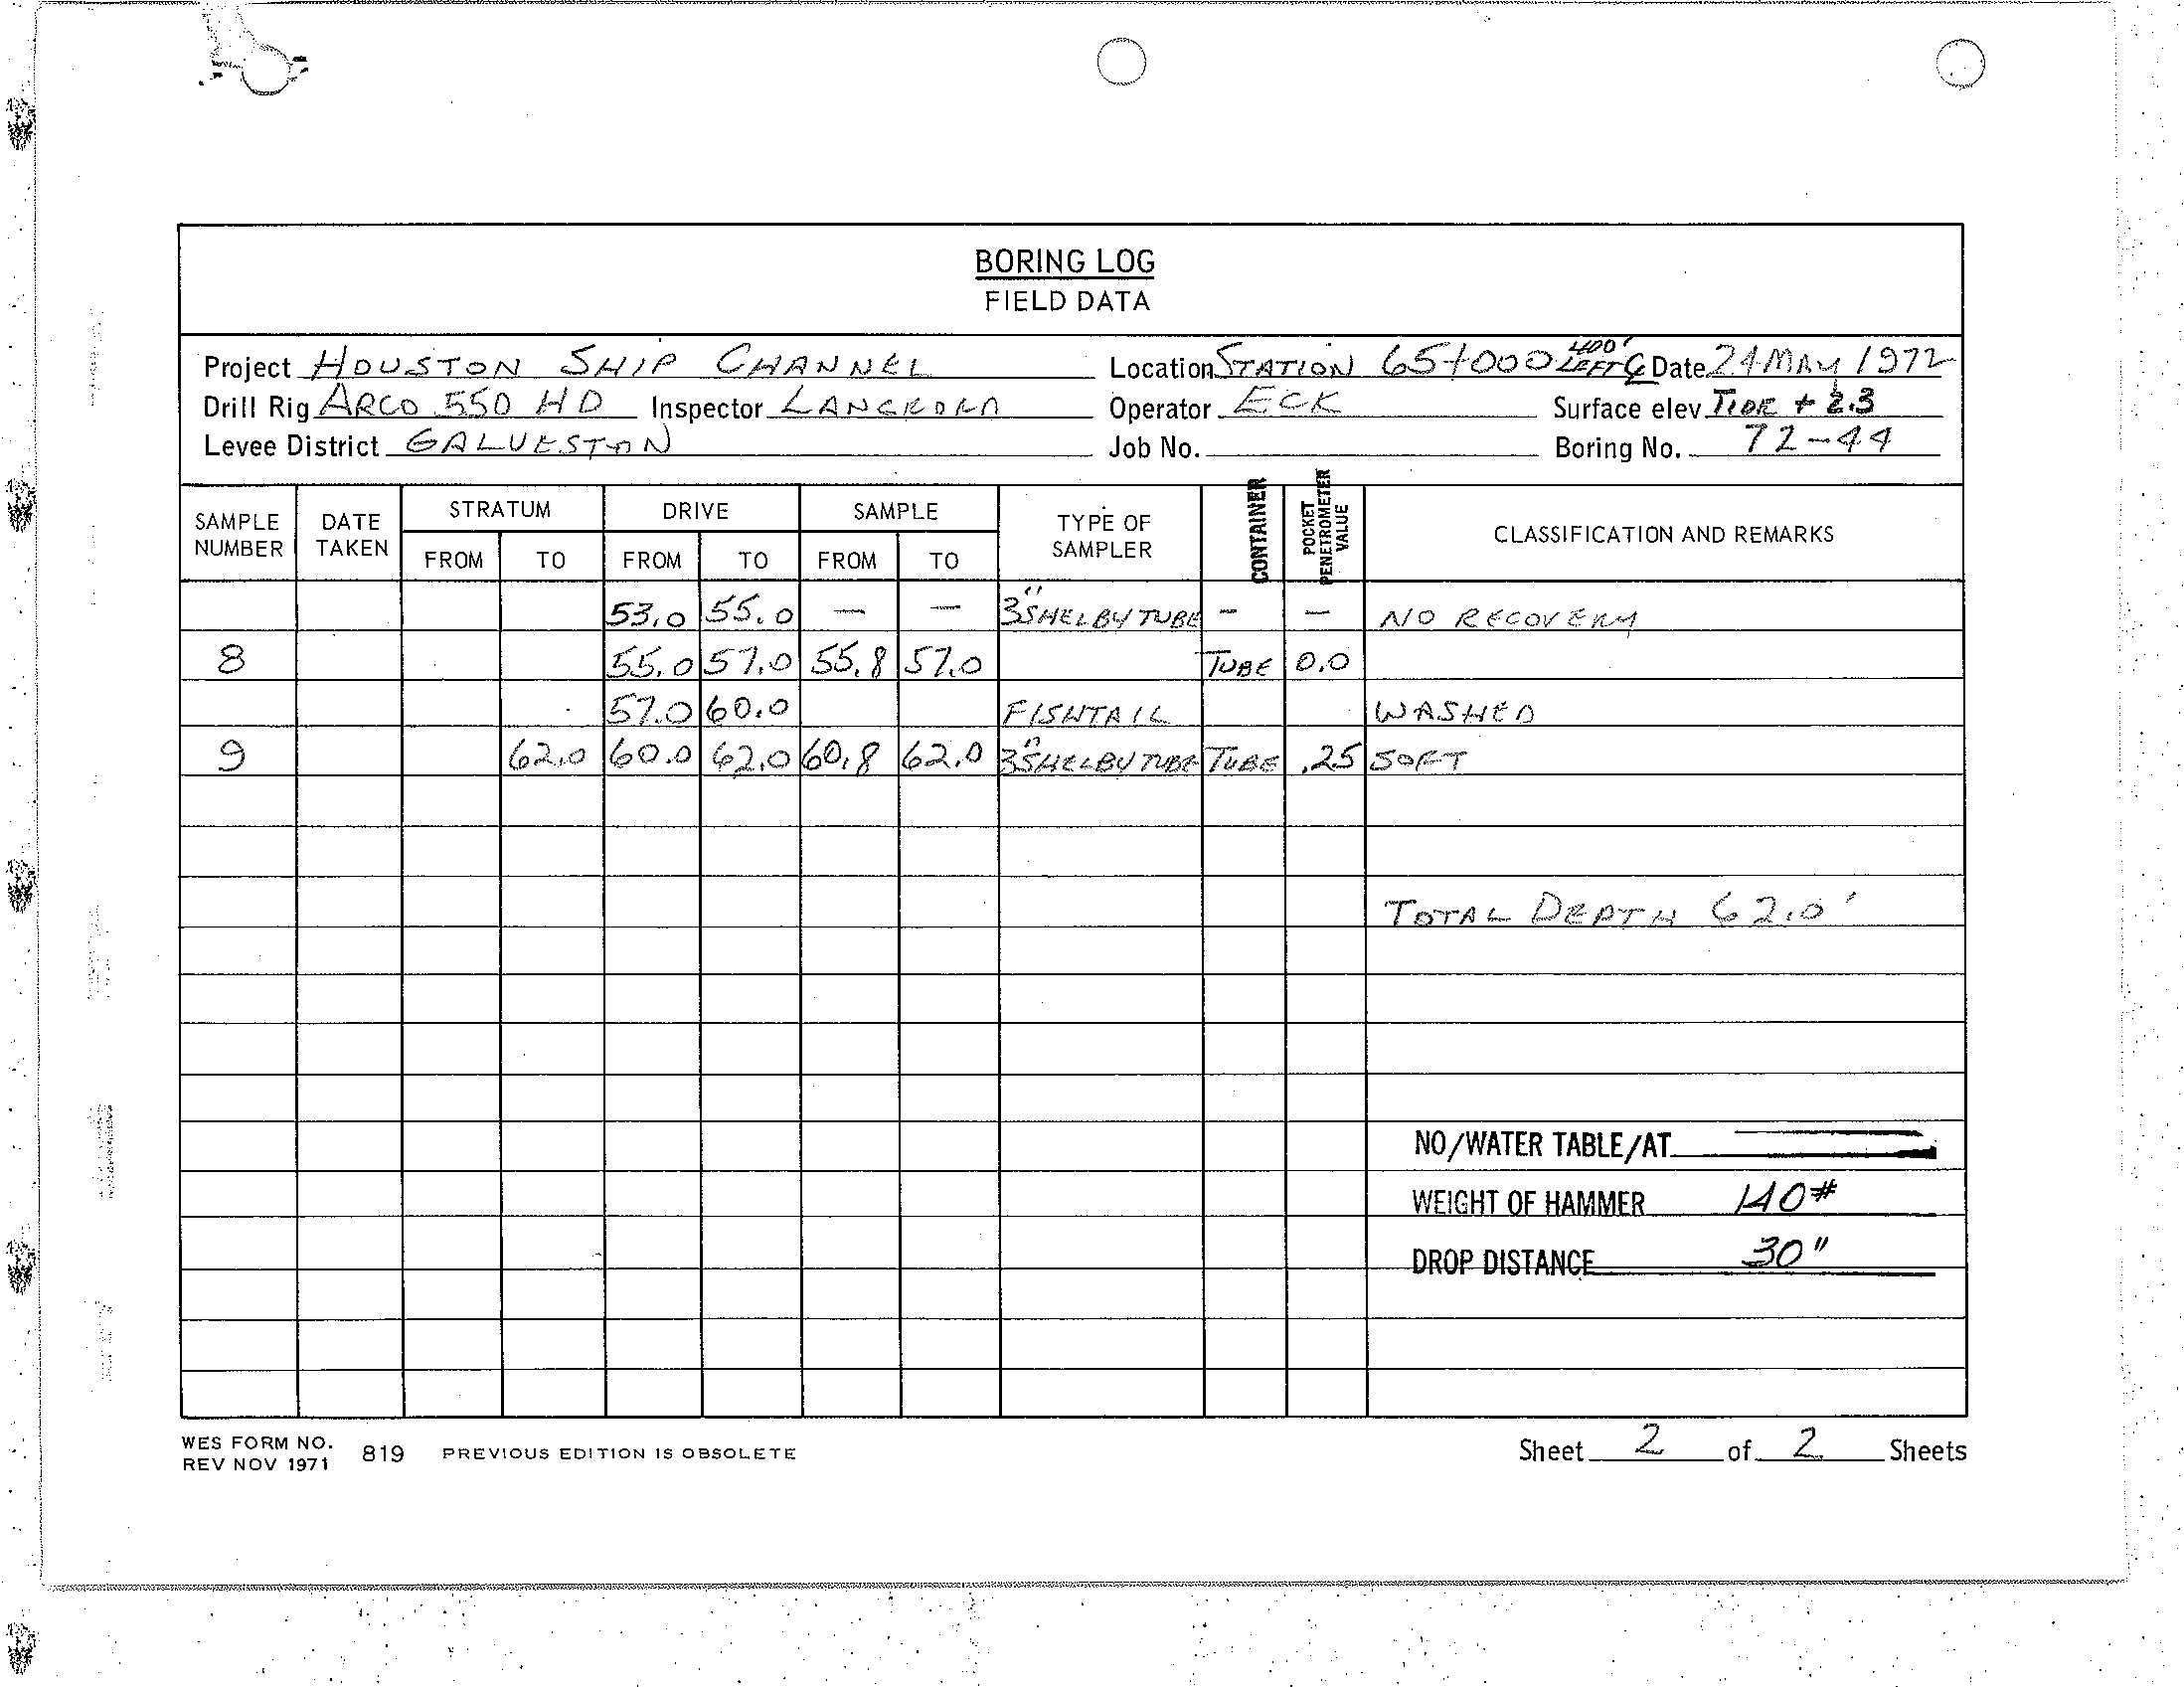 BORING LOG
FIELD DATA
Project HOUSTON SHIP CHANNEL Location STATION 65+000 400' LEFT ℄ Date 24 MAY 1972
Drill Rig ARCO 550 HD Inspector Operator ECK Surface elev. TIDE + 2.3
Levee District GALVESTON Job No. Boring No. 72-44
SAMPLE NUMBER DATE TAKEN STRATUM FROM TO DRIVE FROM TO SAMPLE FROM TO TYPE OF SAMPLER CONTAINER POCKET PENETROMETER VALUE CLASSIFICATION AND REMARKS
53.0 55.0 — — 3" SHELBY TUBE - — NO RECOVERY
8 55.0 57.0 55.8 57.0 TUBE 0.0
57.0 60.0 FISHTAIL WASHED
9 62.0 60.0 62.0 60.8 62.0 3" SHELBY TUBE TUBE .25 SOFT
TOTAL DEPTH 62.0'
NO/WATER TABLE/AT
WEIGHT OF HAMMER 140#
DROP DISTANCE 30"
WES FORM NO. 819 PREVIOUS EDITION IS OBSOLETE Sheet 2 of 2 Sheets
REV NOV 1971